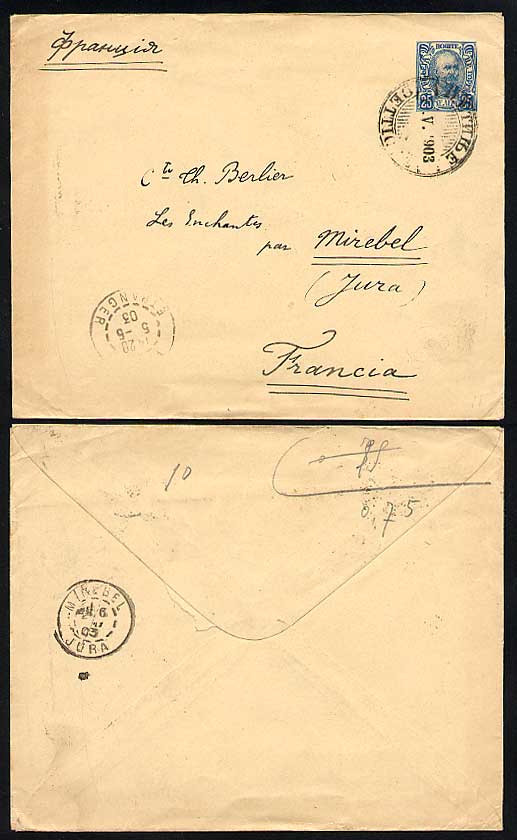 Франція
25 25
ЦЕТИЊЕ
V. 903
CETTIG
Cte Th. Berlier
Les Enchantes
par Mirebel
(Jura)
Francia
ETRANGER
20
5 -5
03
10
0,75
MIREBEL
6
03
JURA